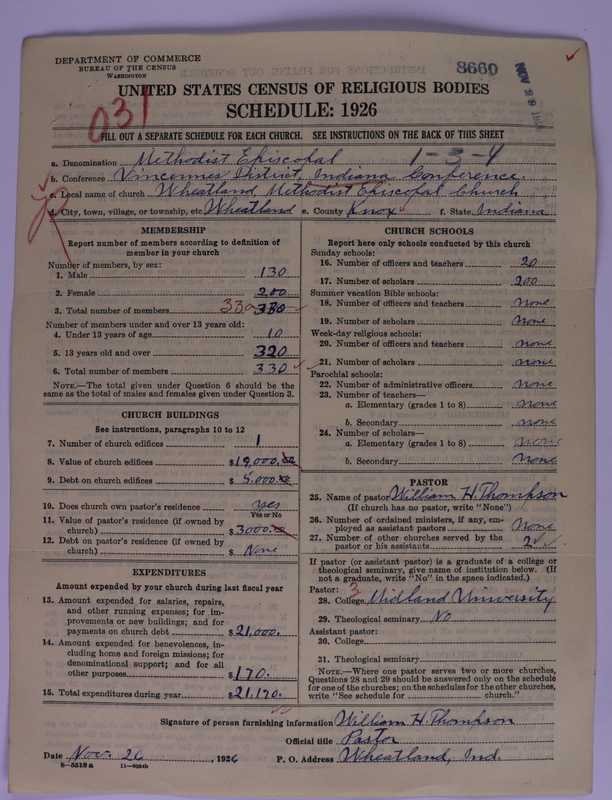 DEPARTMENT OF COMMERCE
BUREAU OF THE CENSUS
WASHINGTON
8660
NOV 29
UNITED STATES CENSUS OF RELIGIOUS BODIES
SCHEDULE: 1926
031
FILL OUT A SEPARATE SCHEDULE FOR EACH CHURCH. SEE INSTRUCTIONS ON THE BACK OF THIS SHEET
1-3-4
a. Denomination Methodist Episcopal
b. Conference Vincennes District, Indiana Conference.
c. Local name of church Wheatland Methodist Episcopal Church
d. City, town, village, or township, etc Wheatland e. County Knox f. State Indiana
MEMBERSHIP
Report number of members according to definition of
member in your church
Number of members, by sex:
1. Male 130
2. Female 200
3. Total number of members 330 330
Number of members under and over 13 years old:
4. Under 13 years of age 10
5. 13 years old and over 320
6. Total number of members 330
NOTE.—The total given under Question 6 should be the
same as the total of males and females given under Question 3.
CHURCH BUILDINGS
See instructions, paragraphs 10 to 12
7. Number of church edifices 1
8. Value of church edifices $19,000.00
9. Debt on church edifices $5,000.00
10. Does church own pastor's residence yes
Yes or No
11. Value of pastor's residence (if owned by
church) $3000.00
12. Debt on pastor's residence (if owned by
church) $None
EXPENDITURES
Amount expended by your church during last fiscal year
13. Amount expended for salaries, repairs,
and other running expenses; for im-
provements or new buildings; and for
payments on church debt $21,000.
14. Amount expended for benevolences, in-
cluding home and foreign missions; for
denominational support; and for all
other purposes $170.
15. Total expenditures during year $21,170.
CHURCH SCHOOLS
Report here only schools conducted by this church
Sunday schools:
16. Number of officers and teachers 20
17. Number of scholars 200
Summer vacation Bible schools:
18. Number of officers and teachers none
19. Number of scholars none
Week-day religious schools:
20. Number of officers and teachers none
21. Number of scholars none
Parochial schools:
22. Number of administrative officers none
23. Number of teachers—
a. Elementary (grades 1 to 8) none
b. Secondary none
24. Number of scholars—
a. Elementary (grades 1 to 8) none
b. Secondary none
PASTOR
25. Name of pastor William H. Thompson
(If church has no pastor, write "None")
26. Number of ordained ministers, if any, em-
ployed as assistant pastors None
27. Number of other churches served by the
pastor or his assistants 2
If pastor (or assistant pastor) is a graduate of a college or
theological seminary, give name of institution below. (If
not a graduate, write "No" in the space indicated.)
Pastor: 3
28. College Midland University
29. Theological seminary No
Assistant pastor:
30. College
31. Theological seminary
NOTE.—Where one pastor serves two or more churches,
Questions 28 and 29 should be answered only on the schedule
for one of the churches; on the schedules for the other churches,
write "See schedule for church."
Signature of person furnishing information William H. Thompson
Official title Pastor
Date Nov. 26, 1926 P. O. Address Wheatland, Ind.
8-5518a 11-9024b